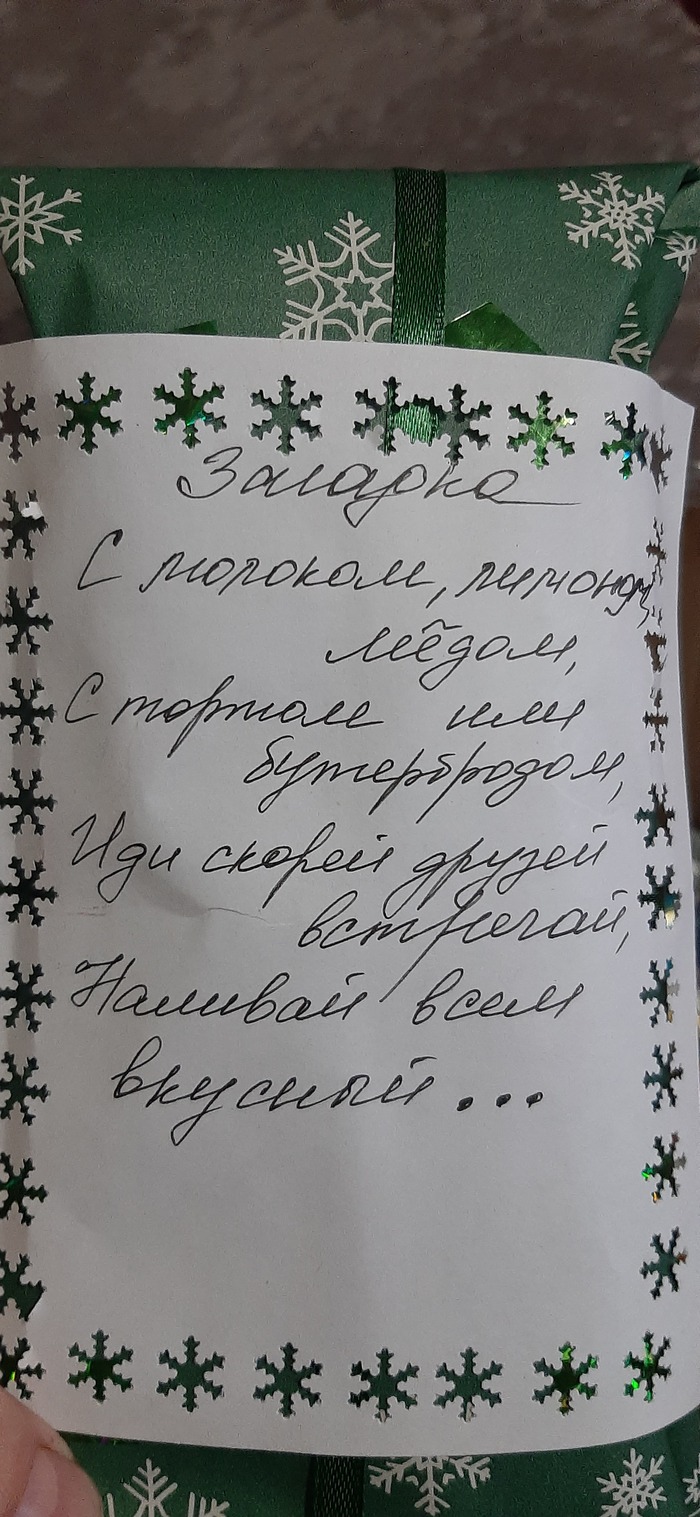 Загадка
С молоком, лимоном,
мёдом,
С тортом или
бутербродом,
Иди скорей друзей
встречай,
Наливай всем
вкусный...